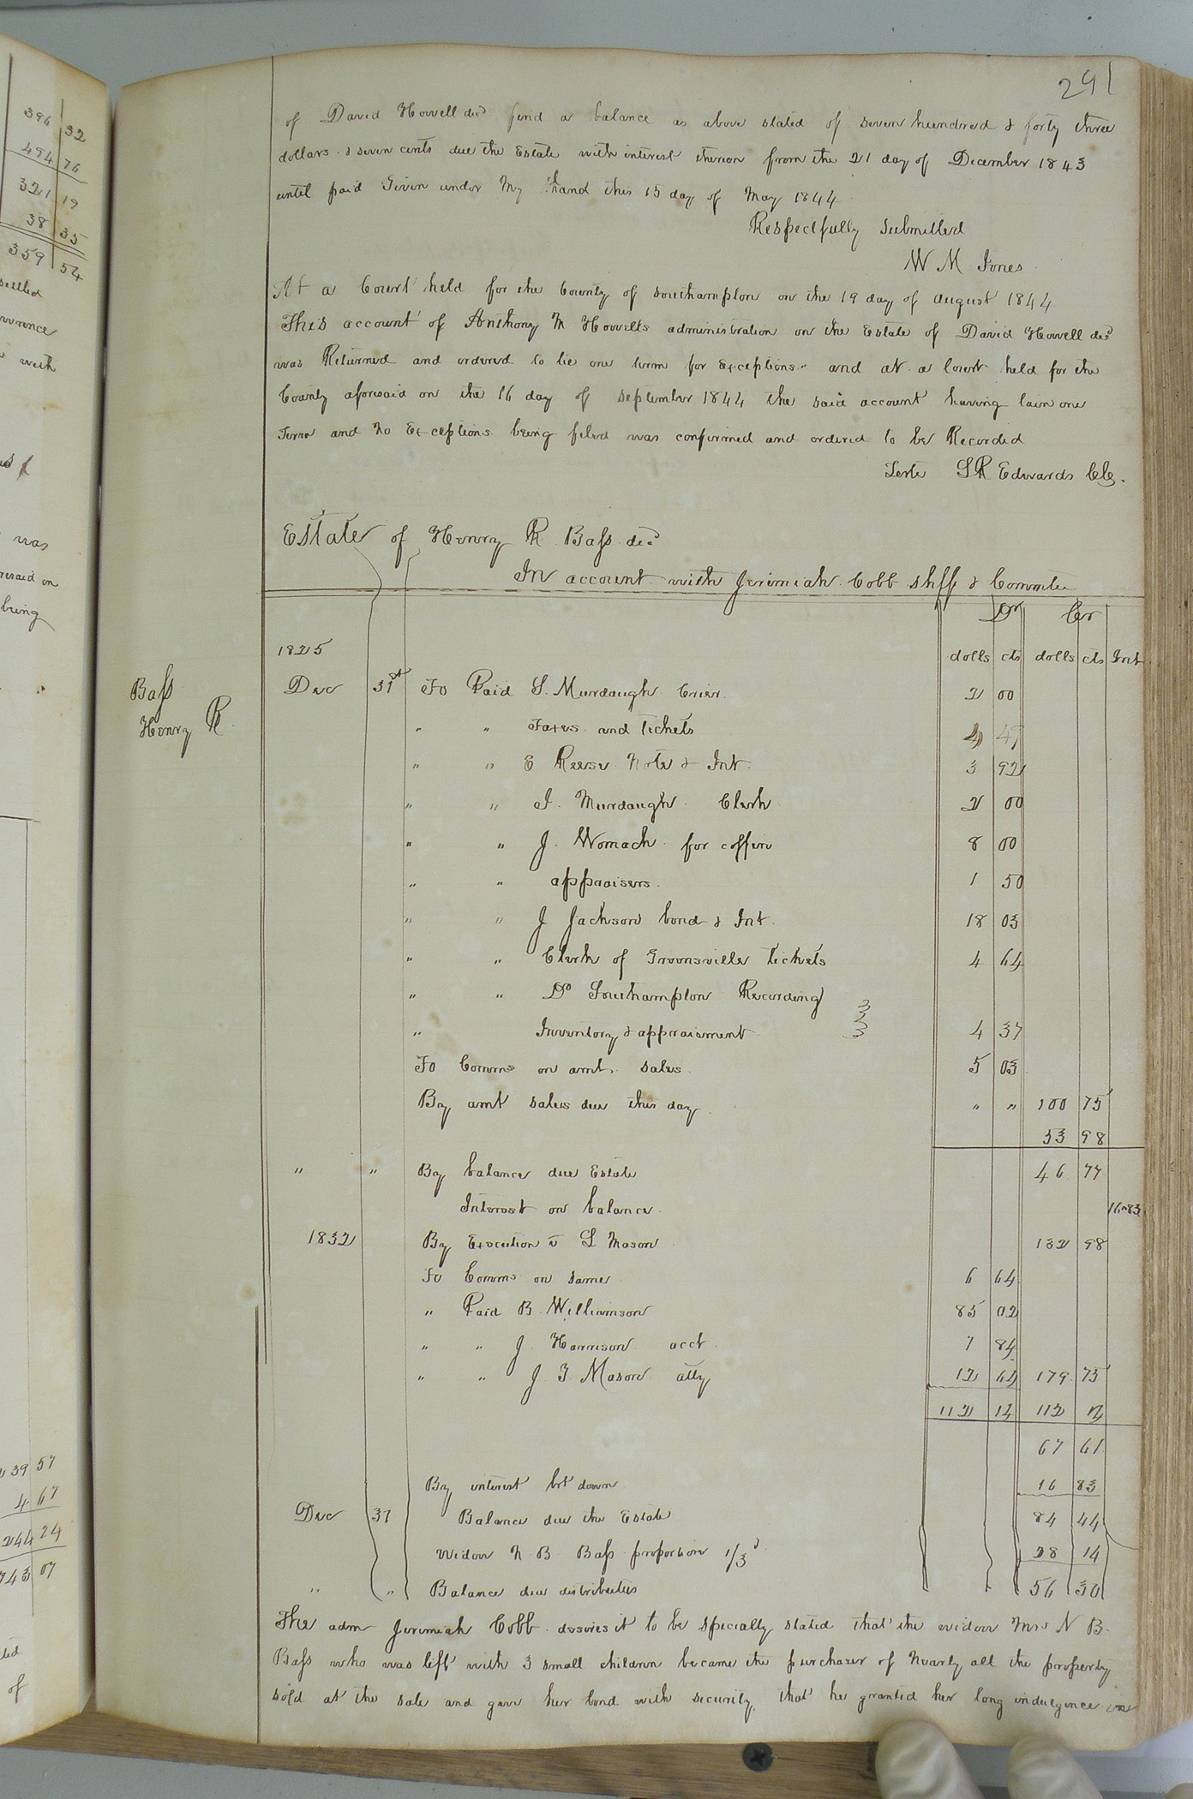 291
of David Howell decd find a balance as above stated of seven hundred & forty three
dollars & seven cents due the Estate with interest thereon from the 21 day of December 1843
until paid Given under My Hand this 15 day of May 1844
Respectfully Submitted
W M Jones
At a Court held for the County of Southampton on the 19 day of August 1844
This account of Anthony M Howells administration on the Estate of David Howell decd
was Returned and ordered to lie one term for Exceptions and at a Court held for the
County aforesaid on the 16 day of September 1844 the said account having lain one
Term and No Exceptions being filed was confirmed and ordered to be Recorded
Teste L R Edwards Clk.
Estate of Henry R Bass decd
In account with Jeremiah Cobb shff & Committee
Dr Cr
1825 dolls cts dolls cts Int
Bass
Henry R
Decr 31st To Paid S. Murdaugh Crier 2 00
" " Taxes and tickets 4 47
" " E Reese Note & Int 3 92
" " J. Murdaugh Clerk 2 00
" " J. Womack for coffin 8 00
" " appraisers 1 50
" " J Jackson bond & Int. 18 03
" " Clerk of Greensville tickets 4 64
" " Do Southampton Recording
" Inventory & appraisment 4 37
To Comms on amt. sales 5 03
By amt sales due this day " " 100 75
53 98
" " By balance due Estate 46 77
Interest on balance 16 83
1832 By Execution vs L Mason 132 98
To Comms on same 6 64
" Paid B. Williamson 85 02
" " J Harrison acct 7 84
" " J Y Mason atty 12 64 179 75
112 14 112 14
67 61
By interest brt down 16 83
Decr 31 Balance due the Estate 84 44
Widow N B Bass proportion 1/3d 28 14
" " Balance due distributees 56 30
The adm Jeremiah Cobb desires it to be specially stated that the widow Mrs N B.
Bass who was left with 3 small children became the purchaser of Nearly all the property
sold at the sale and gave her bond with security that he granted her long indulgence in
396 32
494 76
321 19
38 35
359 54
settled
with
was
being
39 57
4 67
244 24
743 07
of